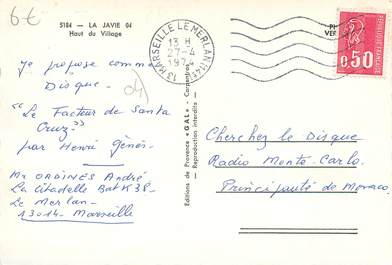 6€
5184 - LA JAVIE 04
Haut du Village
Je propose comme
Disque-
"Le Facteur de Santa
Cruz"
par Henri Génès-
Mr ORDINES André
La Citadelle Bat K38-
Le Merlan-
13014- Marseille
Editions de Provence "GAL" - Carpentras
- Reproduction interdite -
13 MARSEILLE LE MERLAN (14E)
13 H
27-4
1974
0,50
Cherchez le Disque
Radio Monte-Carlo-
Principauté de Monaco-